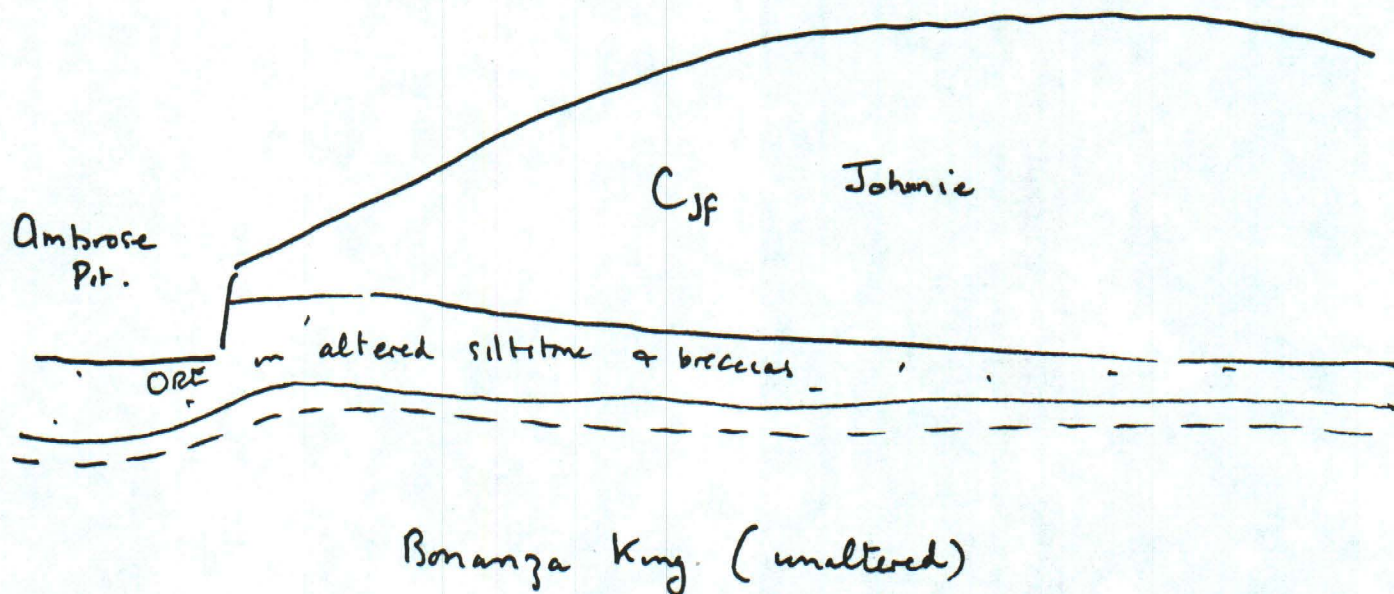 Ambrose
Pit.
CJf Johnnie
ORE in altered siltstone & breccias
Bonanza King (unaltered)